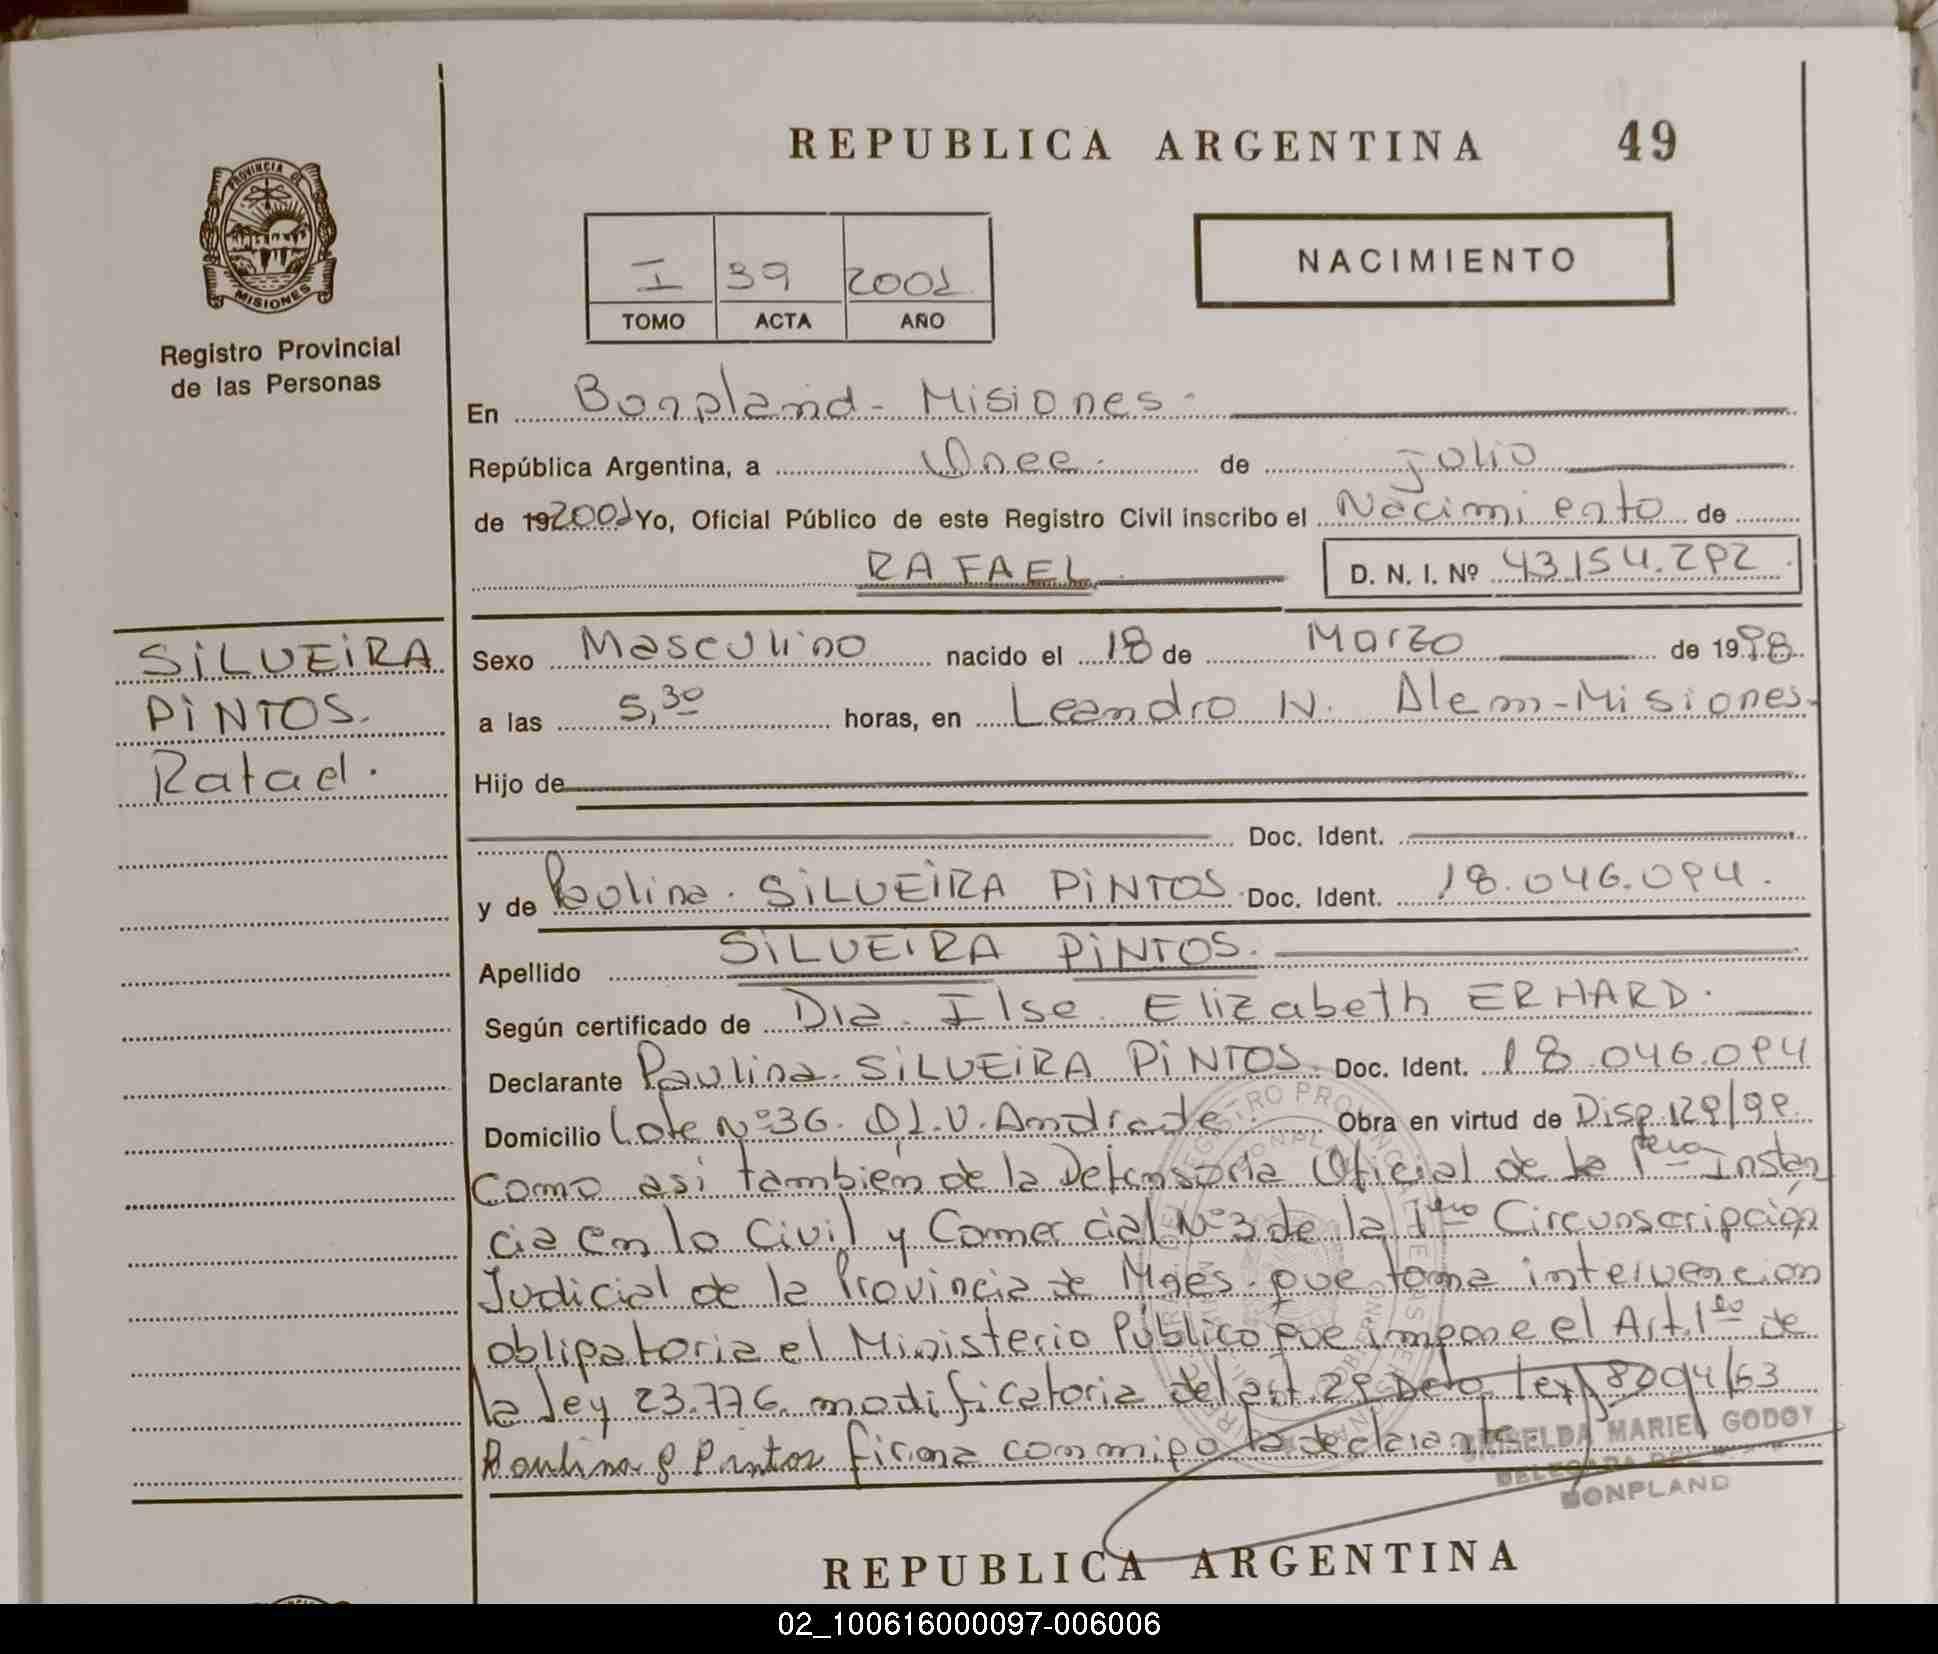 REPUBLICA ARGENTINA 49
PROVINCIA DE
MISIONES
Registro Provincial
de las Personas
I 39 2001
TOMO ACTA AÑO
NACIMIENTO
En Bonpland - Misiones -
República Argentina, a Once de julio
de 19 2001 Yo, Oficial Público de este Registro Civil inscribo el Nacimiento de
RAFAEL D. N. I. Nº 43.154.292
SiLVEiRA
PiNTOS.
Rafael.
Sexo Masculino nacido el 18 de Marzo de 1998
a las 5,30 horas, en Leandro N. Alem - Misiones -
Hijo de
Doc. Ident.
y de Paulina. SiLVEiRA PiNTOS Doc. Ident. 18.046.094.
Apellido SiLVEiRA PiNTOS.
Según certificado de Dra. Ilse Elizabeth ERHARD.
Declarante Paulina. SiLVEiRA PiNTOS. Doc. Ident. 18.046.094
Domicilio Lote Nº 36. Ol. V. Andrade. Obra en virtud de Disp. 129/99.
Como asi también de la Defensoria Oficial de la 1era Instan
cia en lo Civil y Comercial Nº 3 de la 1era Circunscripción
Judicial de la Provincia de Mnes. que toma intervencion
obligatoria el Ministerio Público que impone el Art. 1ero de
la ley 23.776. modificatoria del art. 29 Dcto ley 8204/63
Paulina S Pintos firma conmigo la declarante
GRISELDA MARIEL GODOY
DELEGADA DEL
BONPLAND
REPUBLICA ARGENTINA
02_100616000097-006006